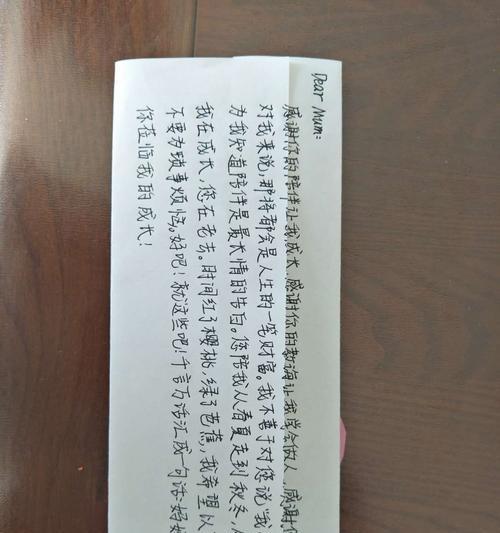 Dear Mum:
感谢你的陪伴让我成长,感谢你的教诲让我学会做人,感谢你
对我来说,那将都会是人生的一笔财富。我不善于对您说“我
为我知道陪伴是最长情的告白。您陪我从春夏走到秋冬,从
我在成长,您在老去。时间红了樱桃,绿了芭蕉,我希望以
不要为琐事烦恼。好吧!就这些吧!千言万语汇成一句话:妈妈
你莅临我的成长!